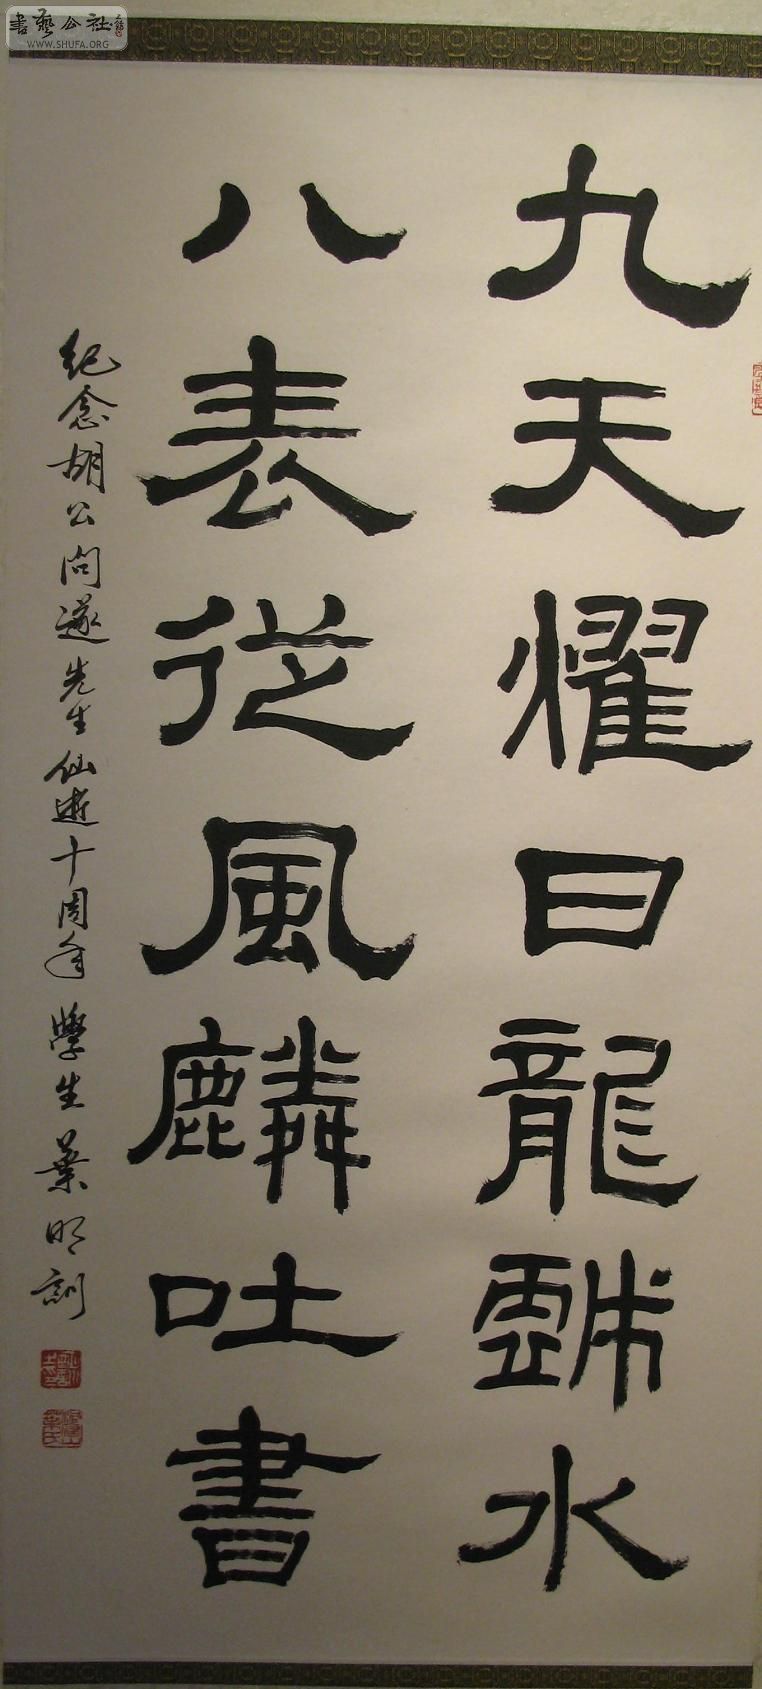 九天耀日龍戲水
八表從風麟吐書
紀念胡公問遂先生仙逝十周年 學生葉明訓
書藝公社
WWW.SHUFA.ORG